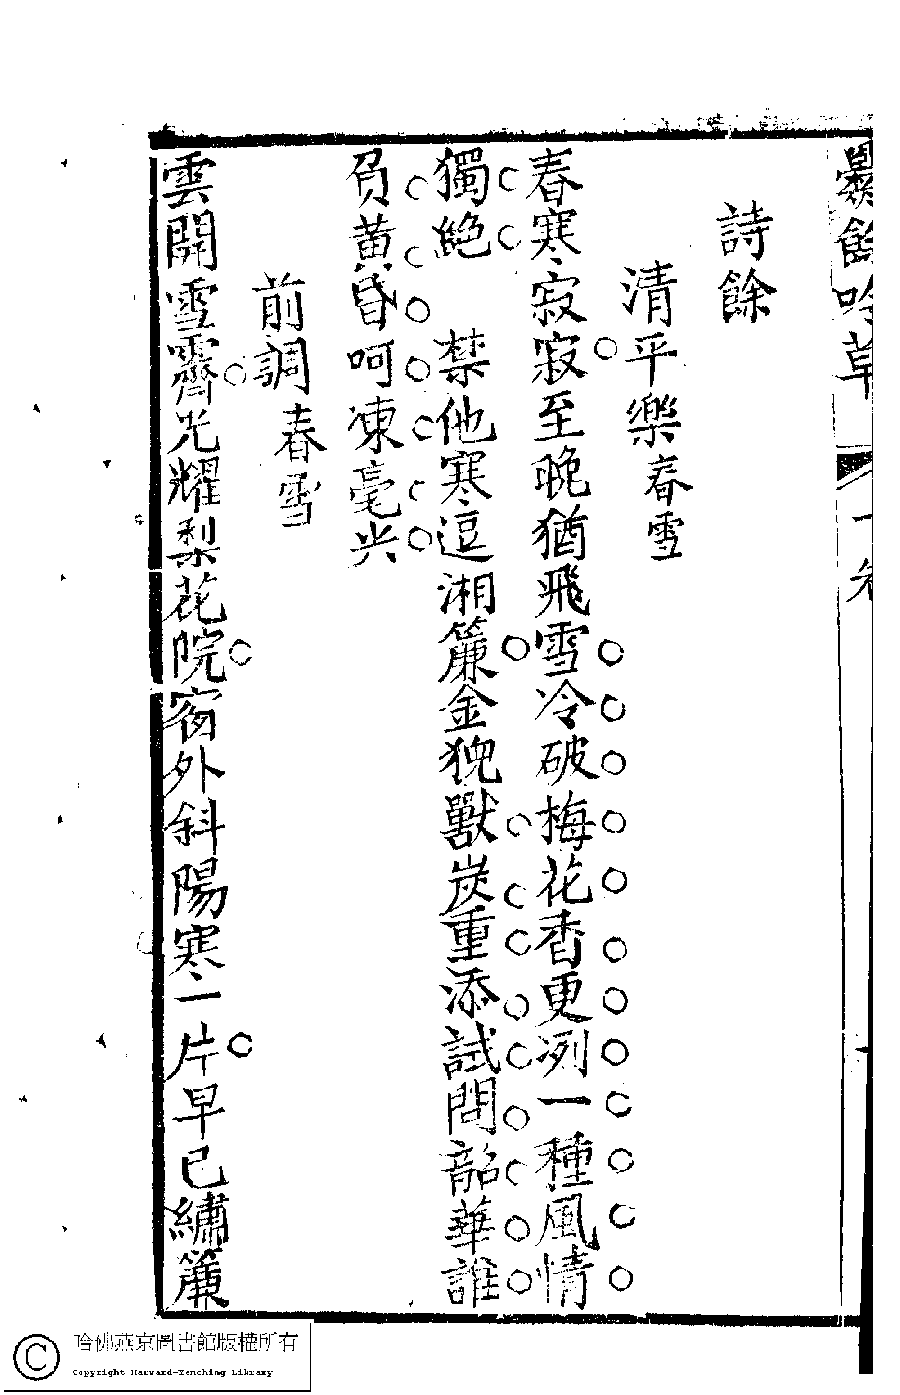 爨餘吟草
詩餘
清平樂春雪
春寒寂寂至晚猶飛雪冷破梅花香更冽一種風情
獨絶　禁他寒逗湘簾金猊獸炭重添試問韶華誰
負黄昏呵凍毫尖
前調春雪
雲開雪霽光耀梨花院窗外斜陽寒一片早已繡簾
哈佛燕京圖書館版權所有
Copyright Harvard-Yenching Library